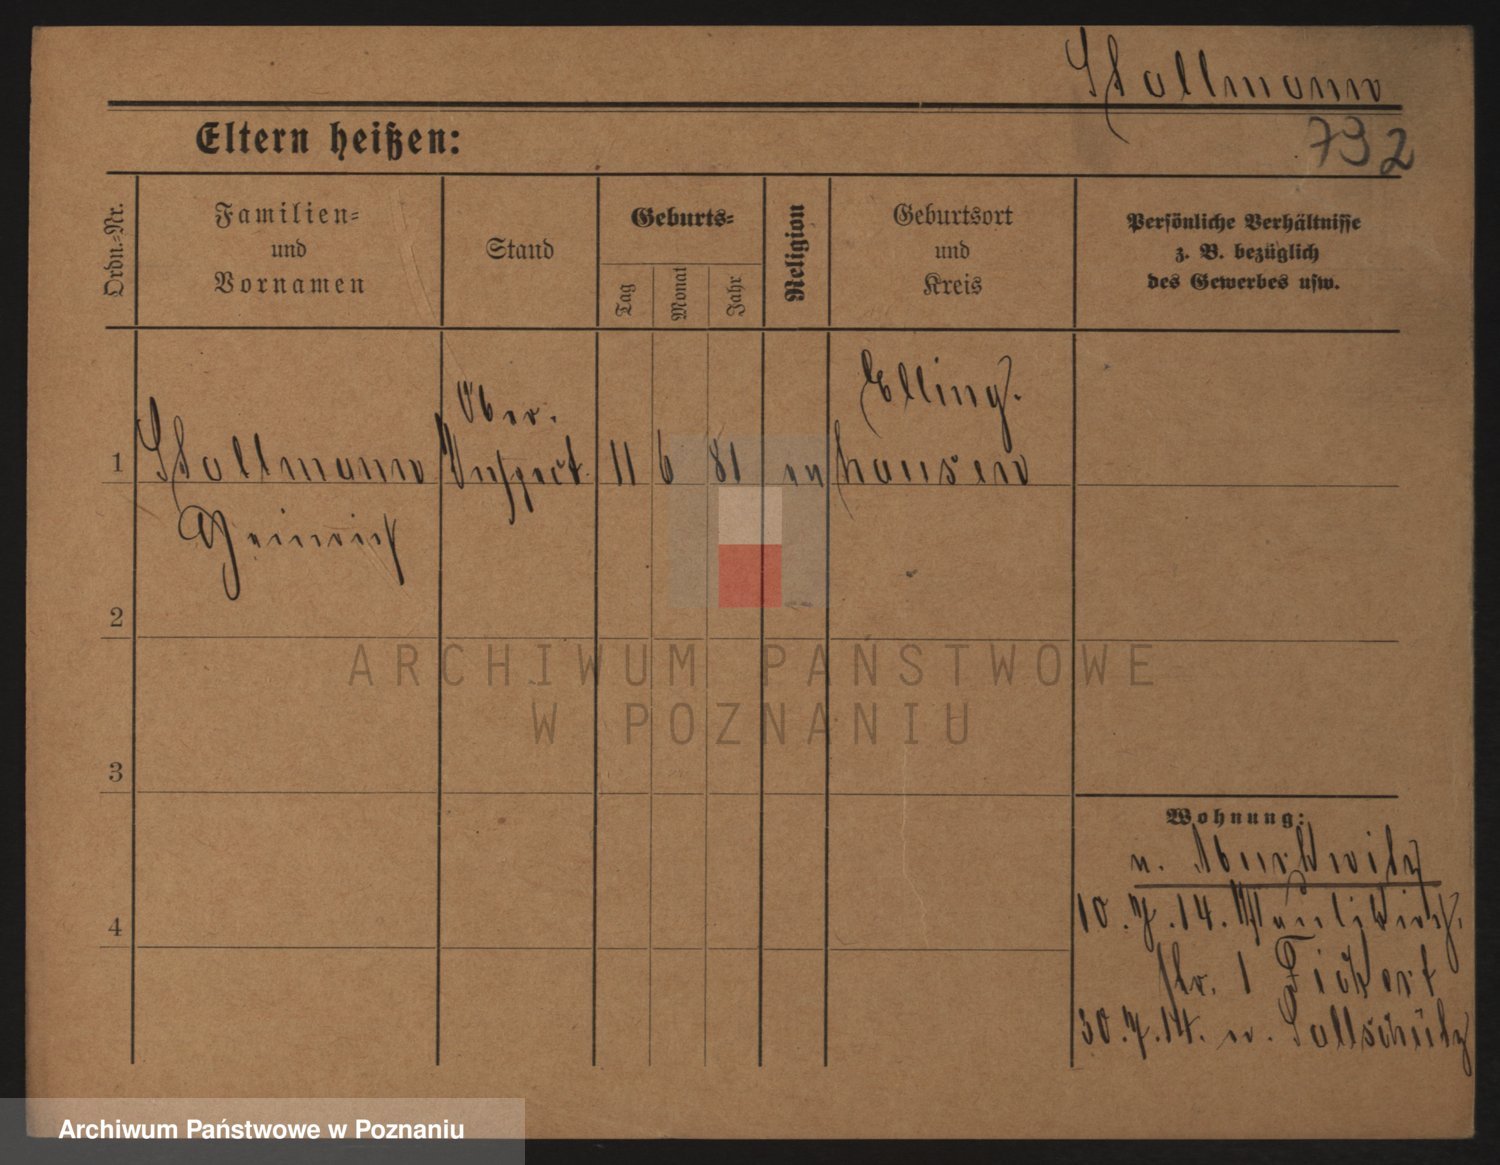 Stallmann
Eltern heißen:
792
Ordn.=Nr.
Familien=
und
Vornamen
Stand
Geburts=
Tag
Monat
Jahr
Religion
Geburtsort
und
Kreis
Persönliche Verhältnisse
z. B. bezüglich
des Gewerbes usw.
1
Stallmann
Heinrich
Ober.
Inspect.
11
6
81
ev
Elling.
hausen
2
3
4
Wohnung:
n.
10.7.14.
Nr. 1 Fickert
30.7.14. n. Sollschütz
ARCHIWUM PAŃSTWOWE
W POZNANIU
Archiwum Państwowe w Poznaniu